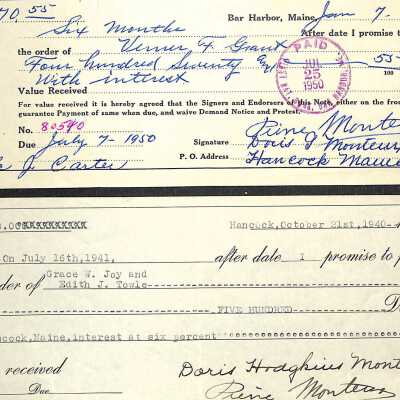 70.55 Bar Harbor, Maine, Jan 7.
Six Months After date I promise t
the order of Verner F. Grant
Four Hundred Seventy 55
With interest 100
PAID JUL 25 1950
Value Received
For value received it is hereby agreed that the Signers and Endorsers of this Note, either on the fro
guarantee Payment of same when due, and waive Demand Notice and Protest.
No. 80540 Pierre Monteu
Due July 7-1950 Signature Doris G Monteux
J. Carter P. O. Address Hancock Maine
Hancock, October 21st, 1940
On July 16th, 1941, after date I promise to p
Grace W. Joy and
der of Edith J. Towle
FIVE HUNDRED D
cock, Maine, interest at six percent
received Doris Hodgkins Mont
Due Pierre Monteux